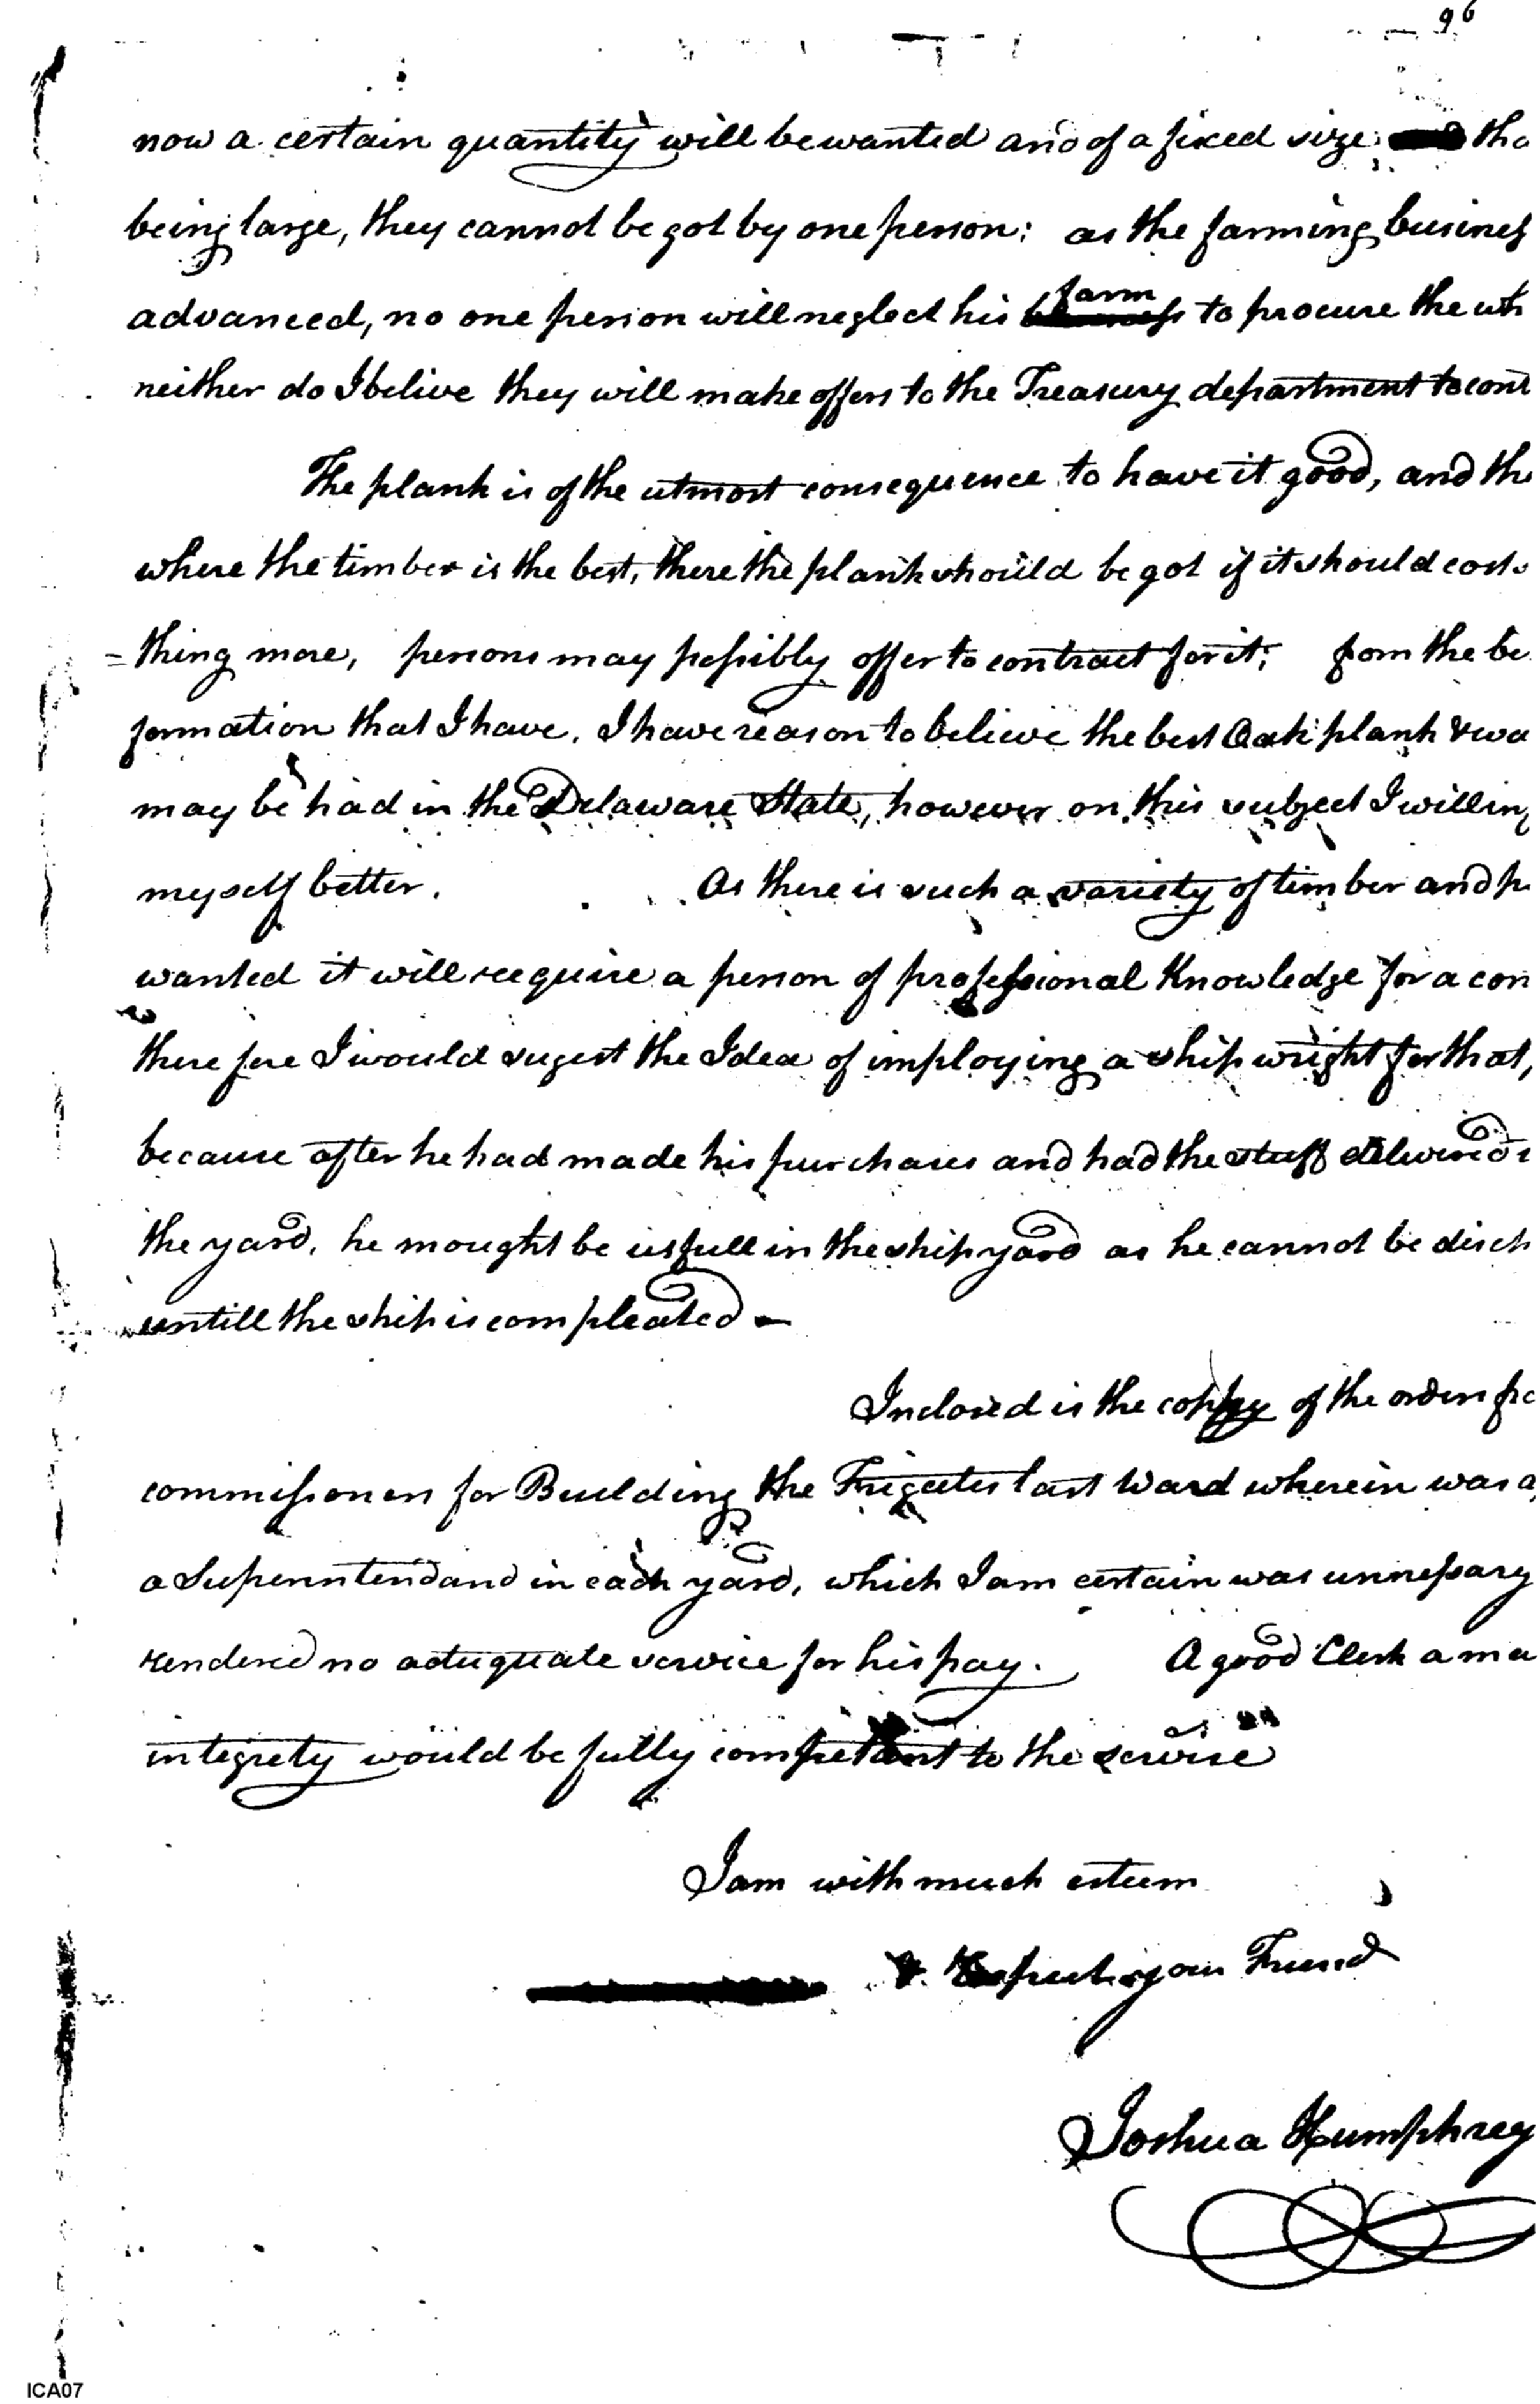 96
now a certain quantity will be wanted and of a fixed size tha
being large, they cannot be got by one person: as the farming business
advanced, no one person will neglect his farm to procure the wh
neither do I belive they will make offers to the Treasury department to cont
The plank is of the utmost consequence to have it good, and the
where the timber is the best, there the plank should be got if it should cost
=thing more, persons may possibly offer to contract for it; from the be
formation that I have, I have reason to believe the best Oak plank & wa
may be had in the Delaware State, however on this subject I will in
myself better. As there is such a variety of timber and p
wanted it will reequire a person of professional Knowledge for a con
there fore I would sugest the Idea of imploying a ship wright for that,
because after he had made his purchases and had the stuff delivered
the yard, he mought be usfull in the ship yard as he cannot be disch
untill the ship is compleated -
Inclosed is the coppy of the orders fro
commissioners for Building the Frigates last Ward wherein was a
a Superintendand in each yard, which I am certain was unnessary
rendered no aduquate service for his pay. A good Clerk a ma
integrety would be fully competant to the service
I am with much esteem
& Respect your Friend
Joshua Humphrey
ICA07